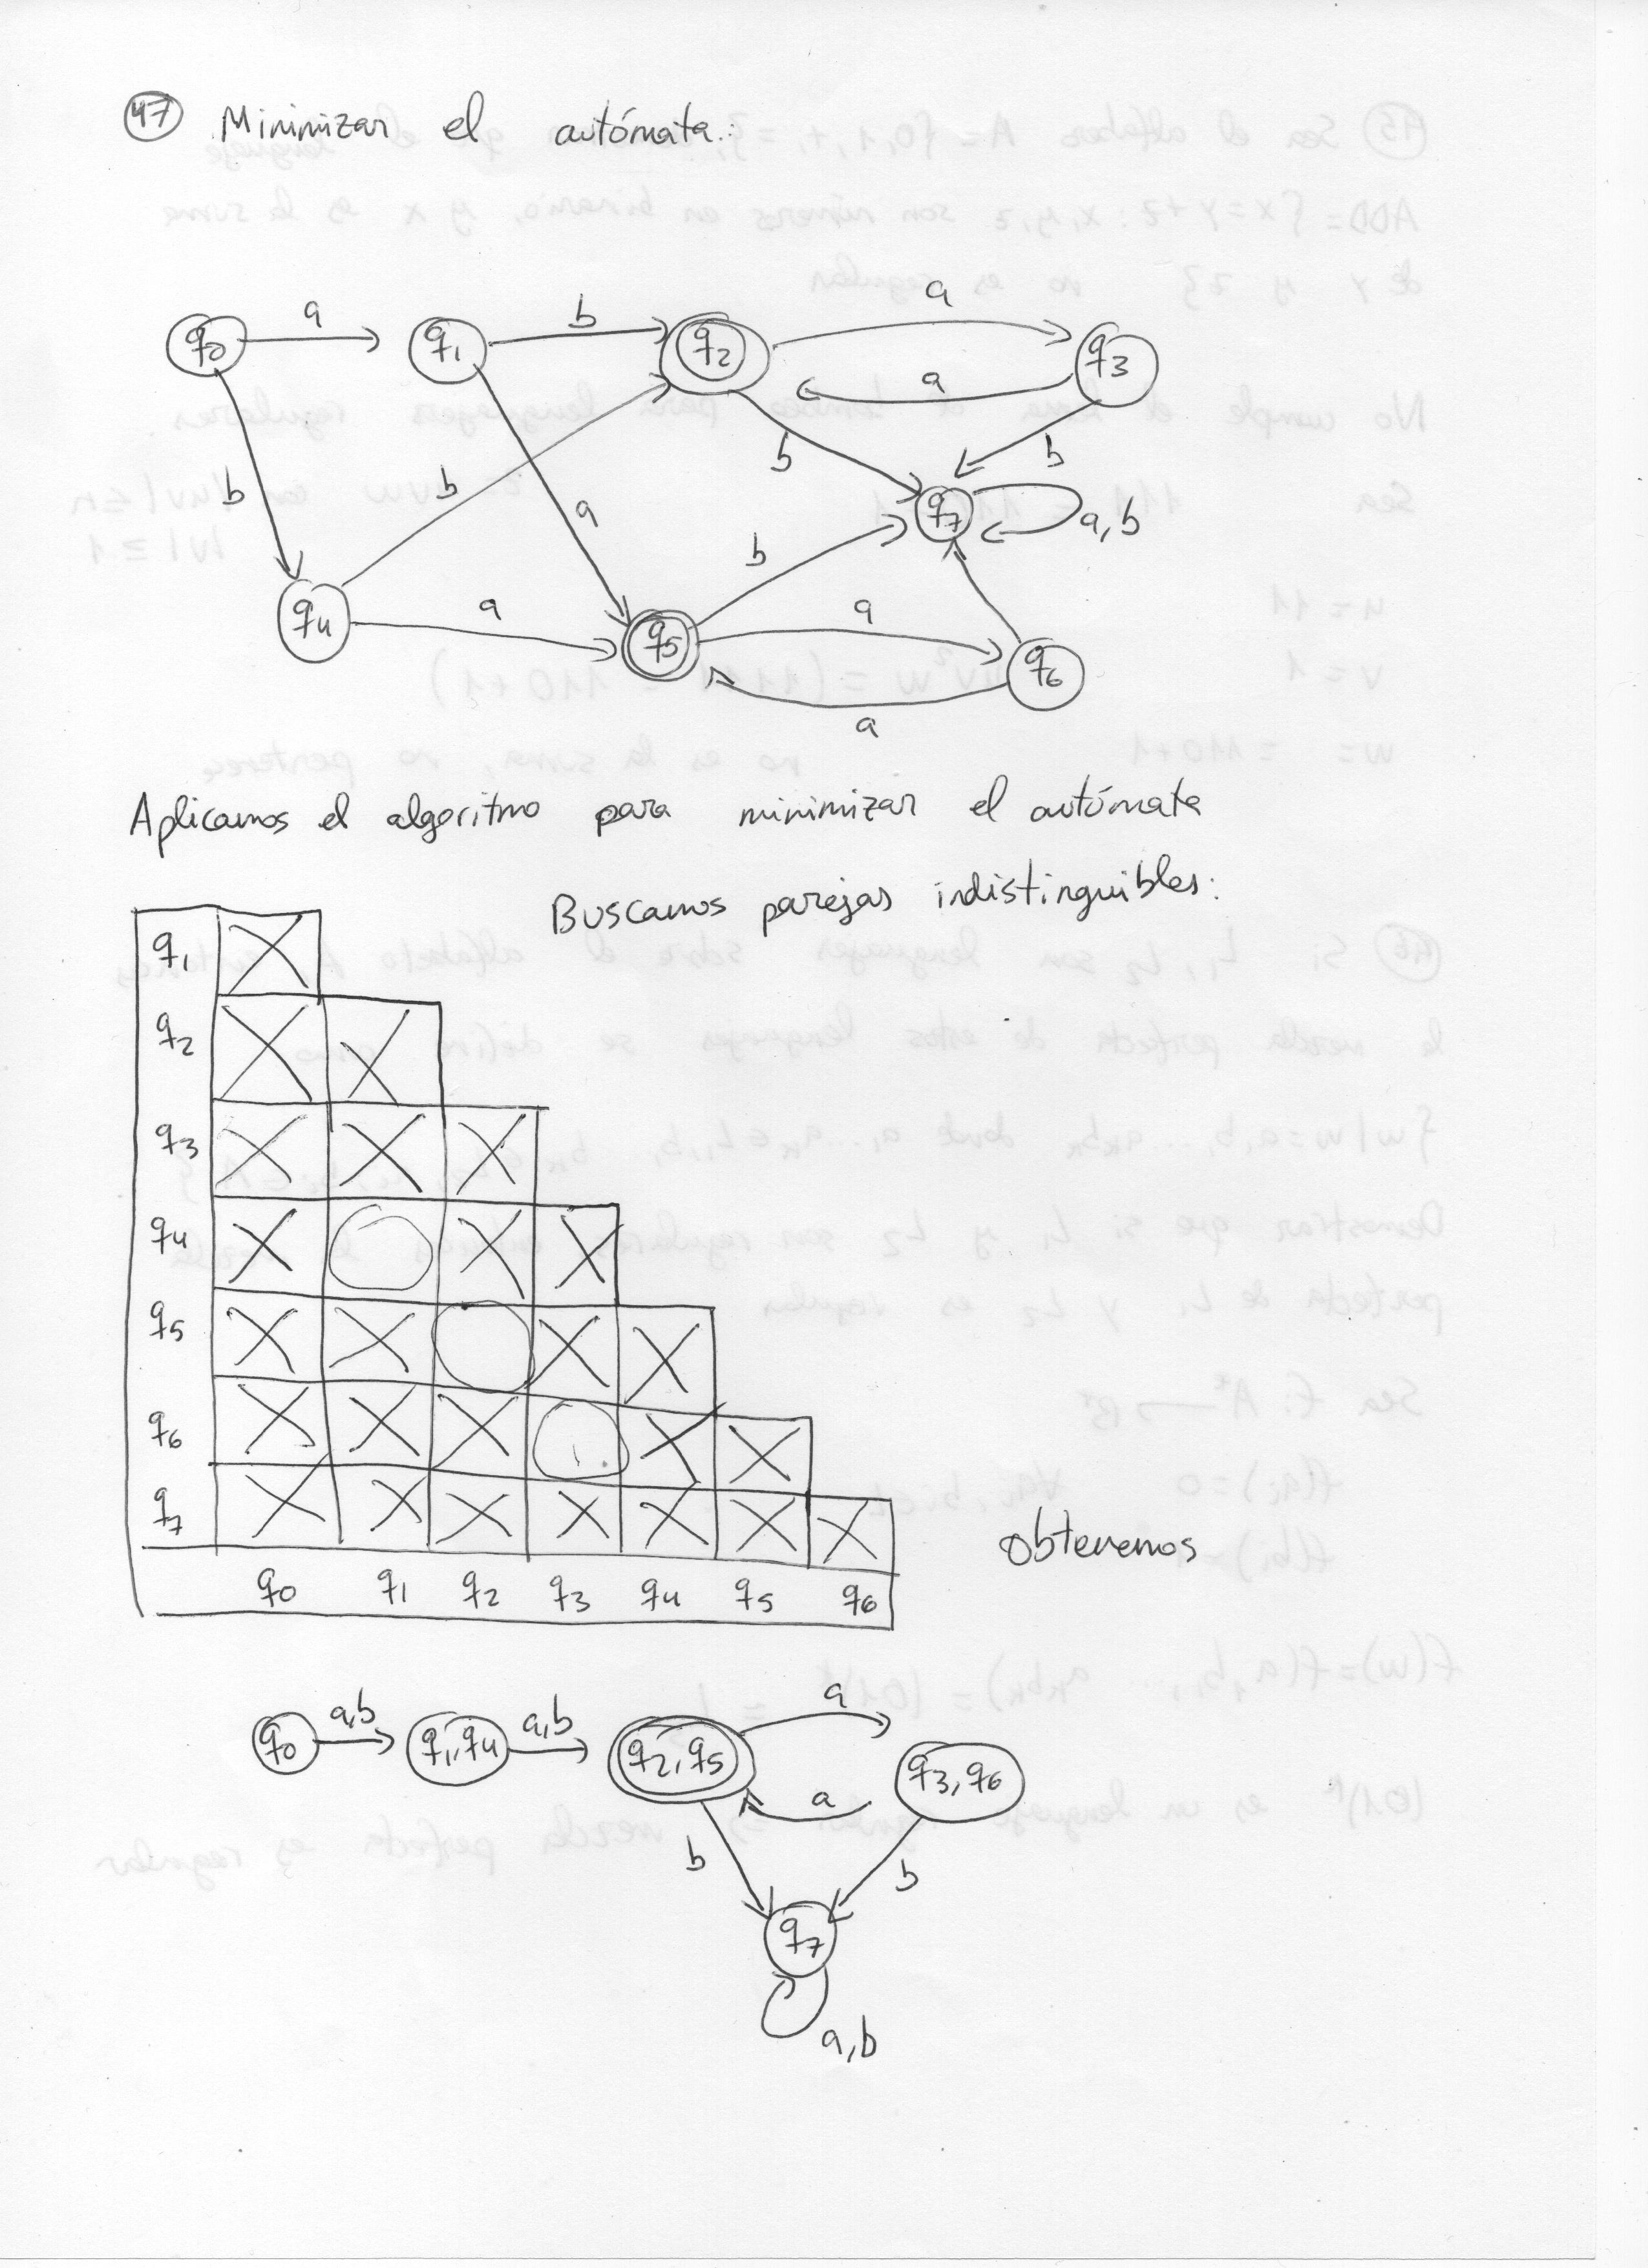 47 Minimizar el autómata:
a b a
q0 q1 q2 q3
a
b b b b
a q7 a,b
b
q4 a q5 a q6
a
Aplicamos el algoritmo para minimizar el autómata
Buscamos parejas indistinguibles:
q1 X
q2 X X
q3 X X X
q4 X X X
q5 X X X X
q6 X X X X X
q7 X X X X X X X
obtenemos
q0 q1 q2 q3 q4 q5 q6
a,b a,b a
q0 q1,q4 q2,q5 q3,q6
a
b b
q7
a,b